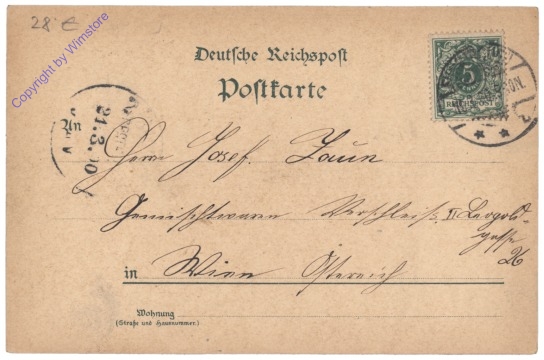 28 €
Copyright by Wimstore
Deutsche Reichspost
Postkarte
5
REICHSPOST
21.3.00
An
Herrn Josef Zaun
Gemischtwaren Verschleiß II Leopold-
gasse
26
in Wien Östereich
Wohnung
(Straße und Hausnummer)